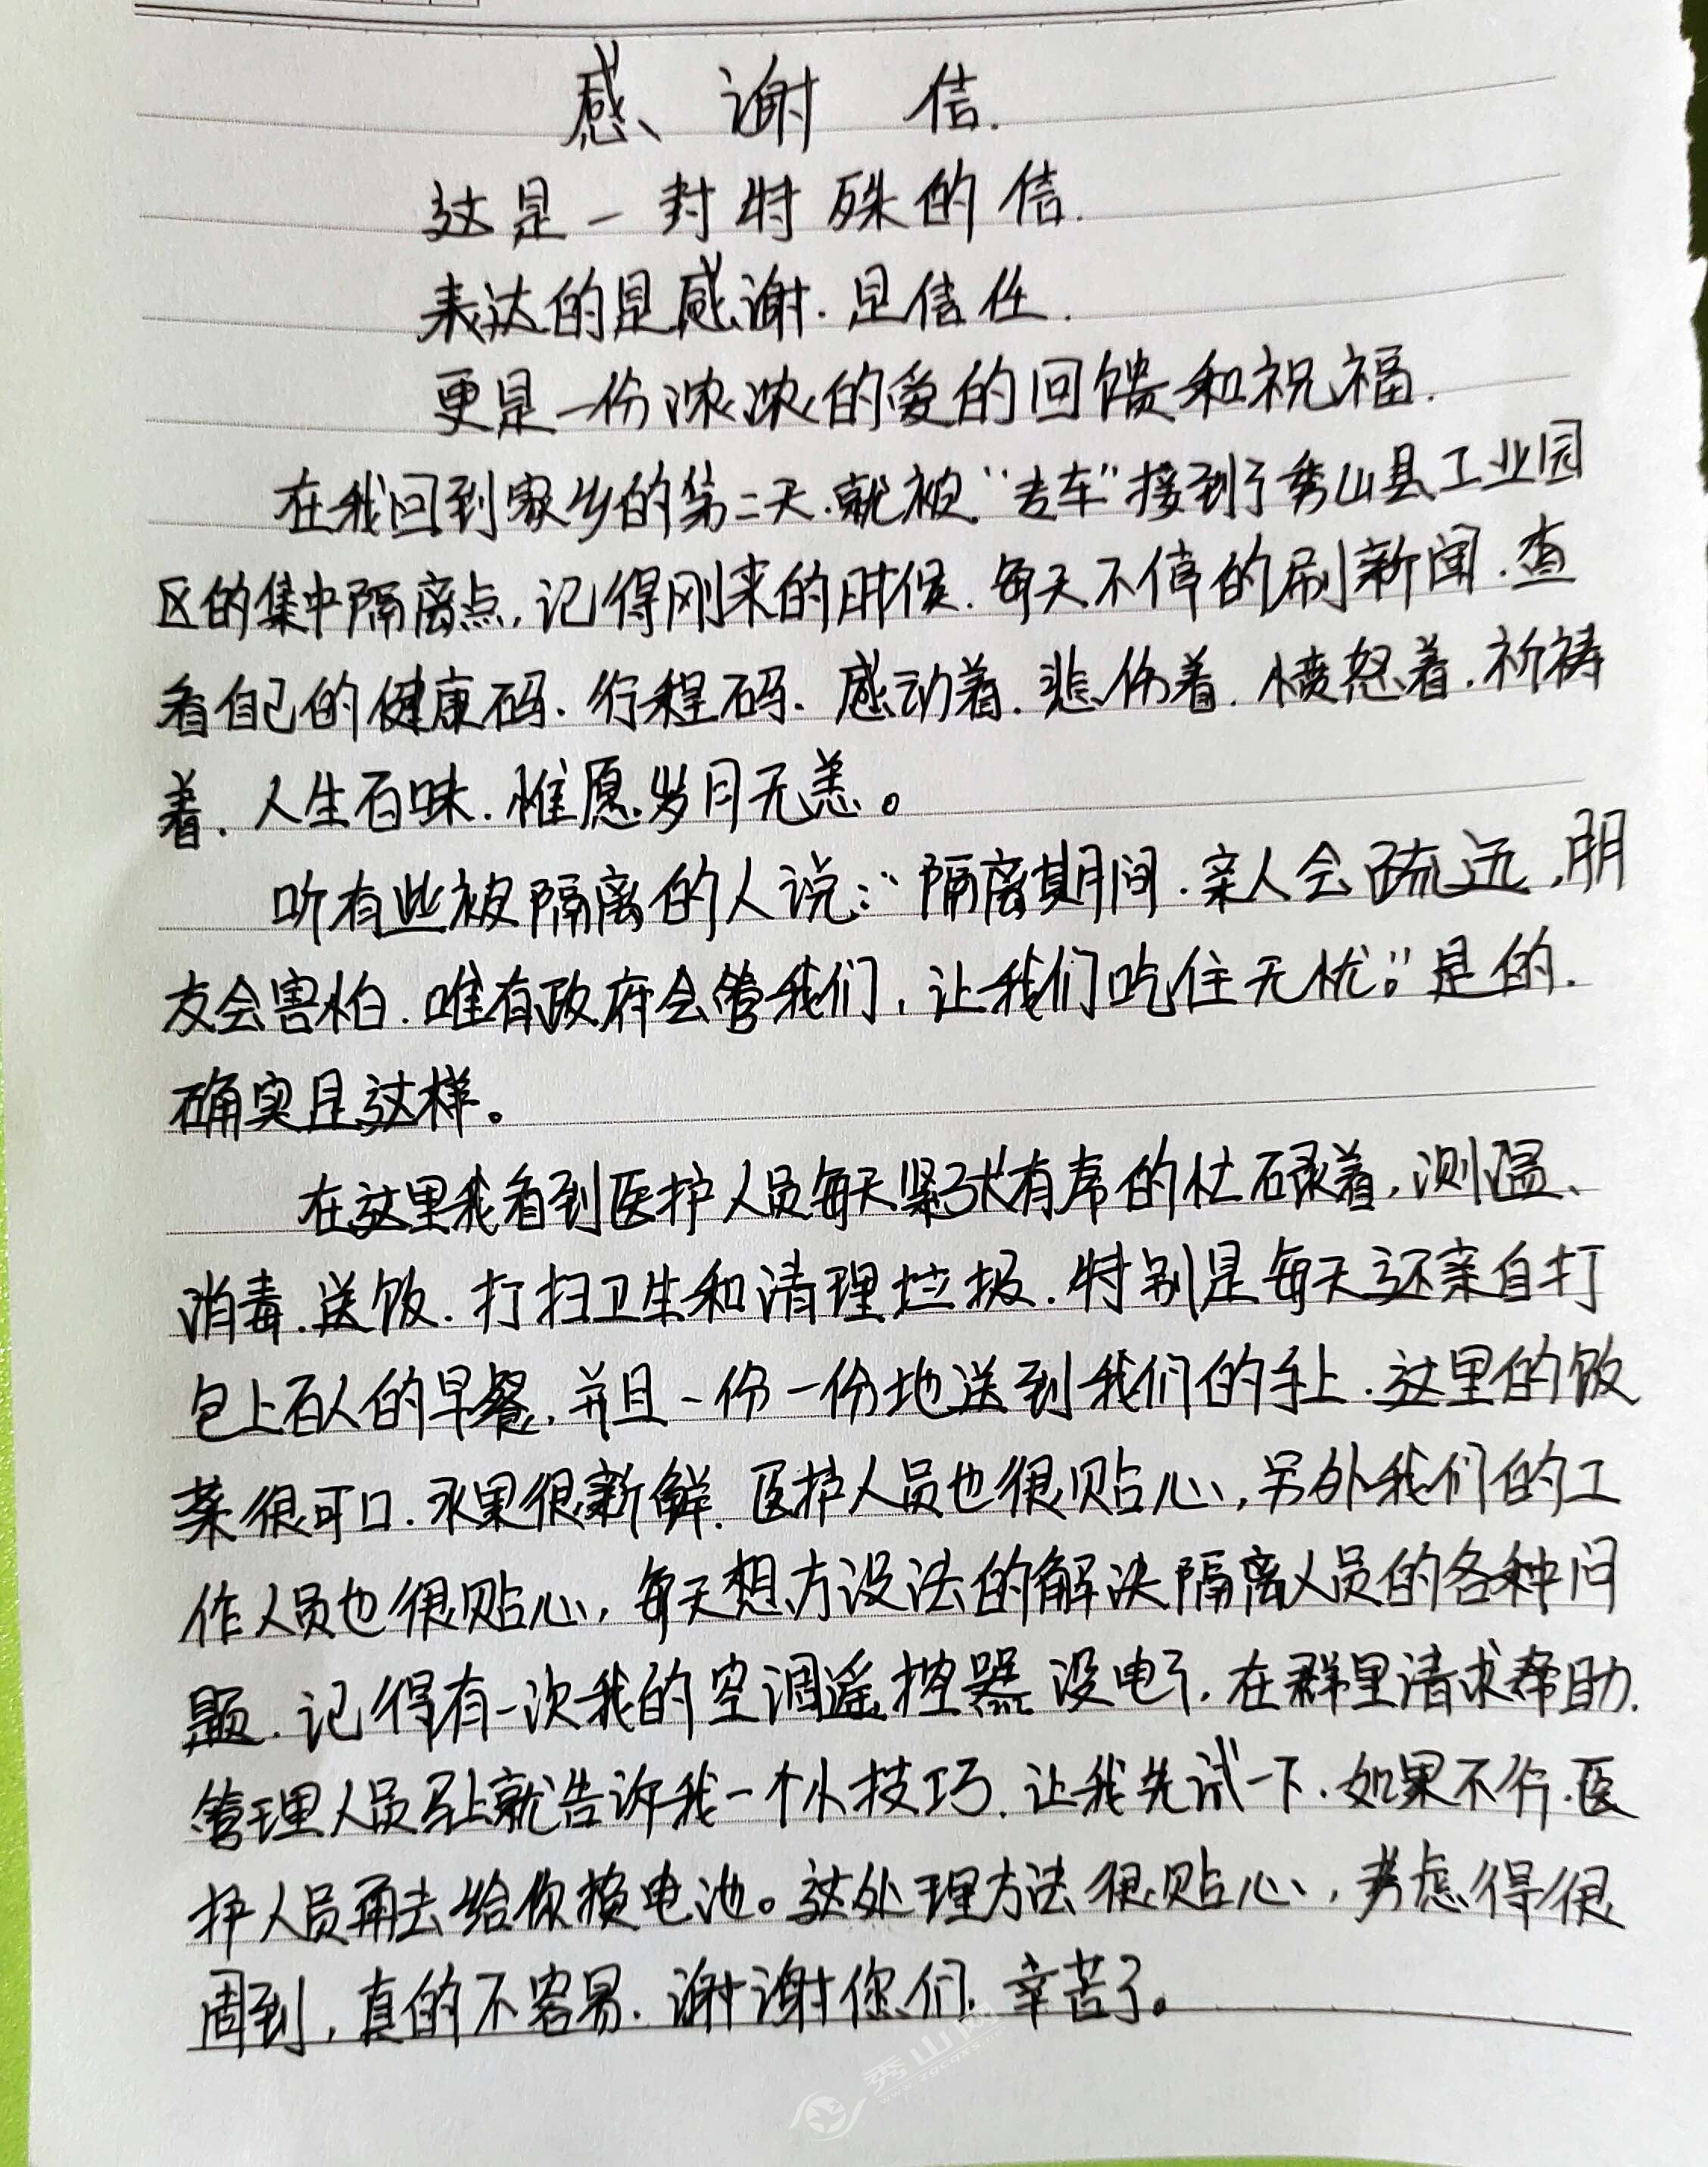 感谢信.
这是一封特殊的信.
表达的是感谢.是信任.
更是一份浓浓的爱的回馈和祝福.
在我回到家乡的第二天.就被“专车”接到了秀山县工业园
区的集中隔离点,记得刚来的时候.每天不停的刷新闻.查
看自己的健康码.行程码.感动着.悲伤着.愤怒着.祈祷
着.人生百味.惟愿岁月无恙。
听有些被隔离的人说:“隔离期间.亲人会疏远,朋
友会害怕.唯有政府会管我们,让我们吃住无忧。”是的.
确实是这样。
在这里我看到医护人员每天紧张有序的忙碌着,测温、
消毒.送饭.打扫卫生和清理垃圾.特别是每天还亲自打
包上百人的早餐,并且一份一份地送到我们的手上.这里的饭
菜很可口.水果很新鲜.医护人员也很贴心,另外我们的工
作人员也很贴心,每天想方设法的解决隔离人员的各种问
题.记得有一次我的空调遥控器没电了,在群里请求帮助.
管理人员马上就告诉我一个小技巧.让我先试一下.如果不行.医
护人员再去给你换电池。这处理方法很贴心,考虑得很
周到,真的不容易.谢谢你们,辛苦了。
秀山网